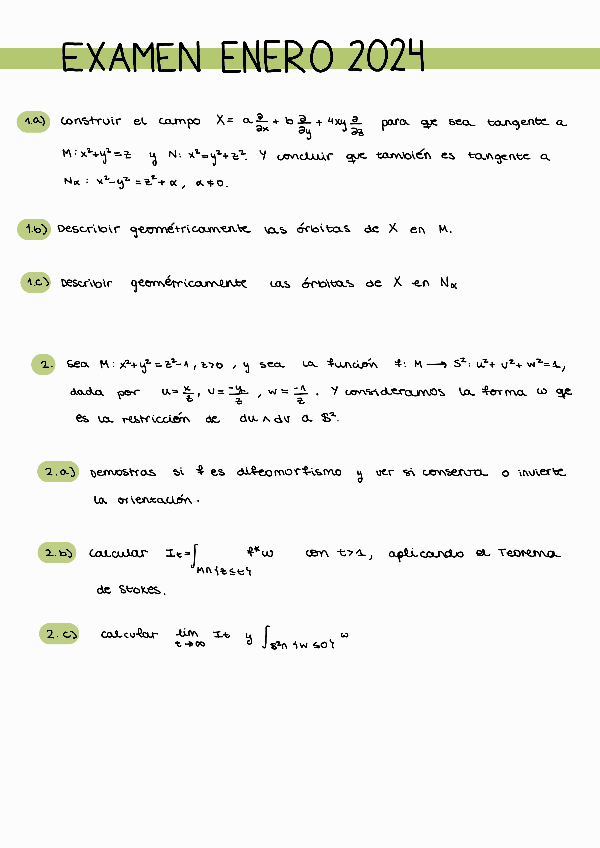 EXAMEN ENERO 2024
1.a) Construir el campo X= a ∂/∂x + b ∂/∂y + 4xy ∂/∂z para qe sea tangente a
M: x²+y²=z y N: x²=y²+z². Y concluir que también es tangente a
Nα: x²-y² = z²+α, α≠0.
1.b) Describir geométricamente las órbitas de X en M.
1.c) Describir geométricamente las órbitas de X en Nα
2. Sea M: x²+y²=z²-1, z>0, y sea la función f: M → S²: u²+v²+w²=1,
dada por u= x/z, v= -y/z, w= -1/z. Y consideramos la forma ω qe
es la restricción de du ∧ dv a S².
2.a) Demostras si f es difeomorfismo y ver si conserva o invierte
la orientación.
2.b) Calcular It=∫_{M∩{z≤t}} f*ω con t>1, aplicando el Teorema
de Stokes.
2.c) calcular lim_{t→∞} It y ∫_{S²∩{w≤0}} ω